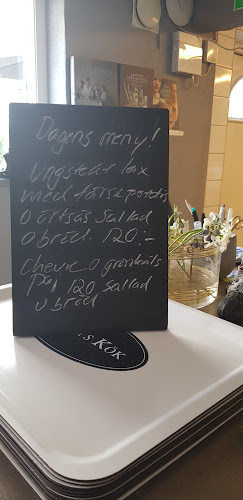 Dagens meny!
Ungstekt lax
med färskpotatis
o örtsås sallad
o bröd. 120:-
Chevre o grönsaks
paj 120 sallad
o bröd
S KÖK